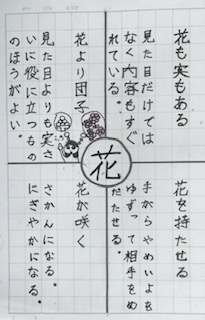 花も実もある
見た目だけでは
なく内容もすぐ
れている。
花より団子
見た目よりも実さ
いに役に立つもの
のほうがよい。
花
花を持たせる
手がらやめいよを
ゆずって相手をめ
だたせる。
花が咲く
さかんになる。
にぎやかになる。